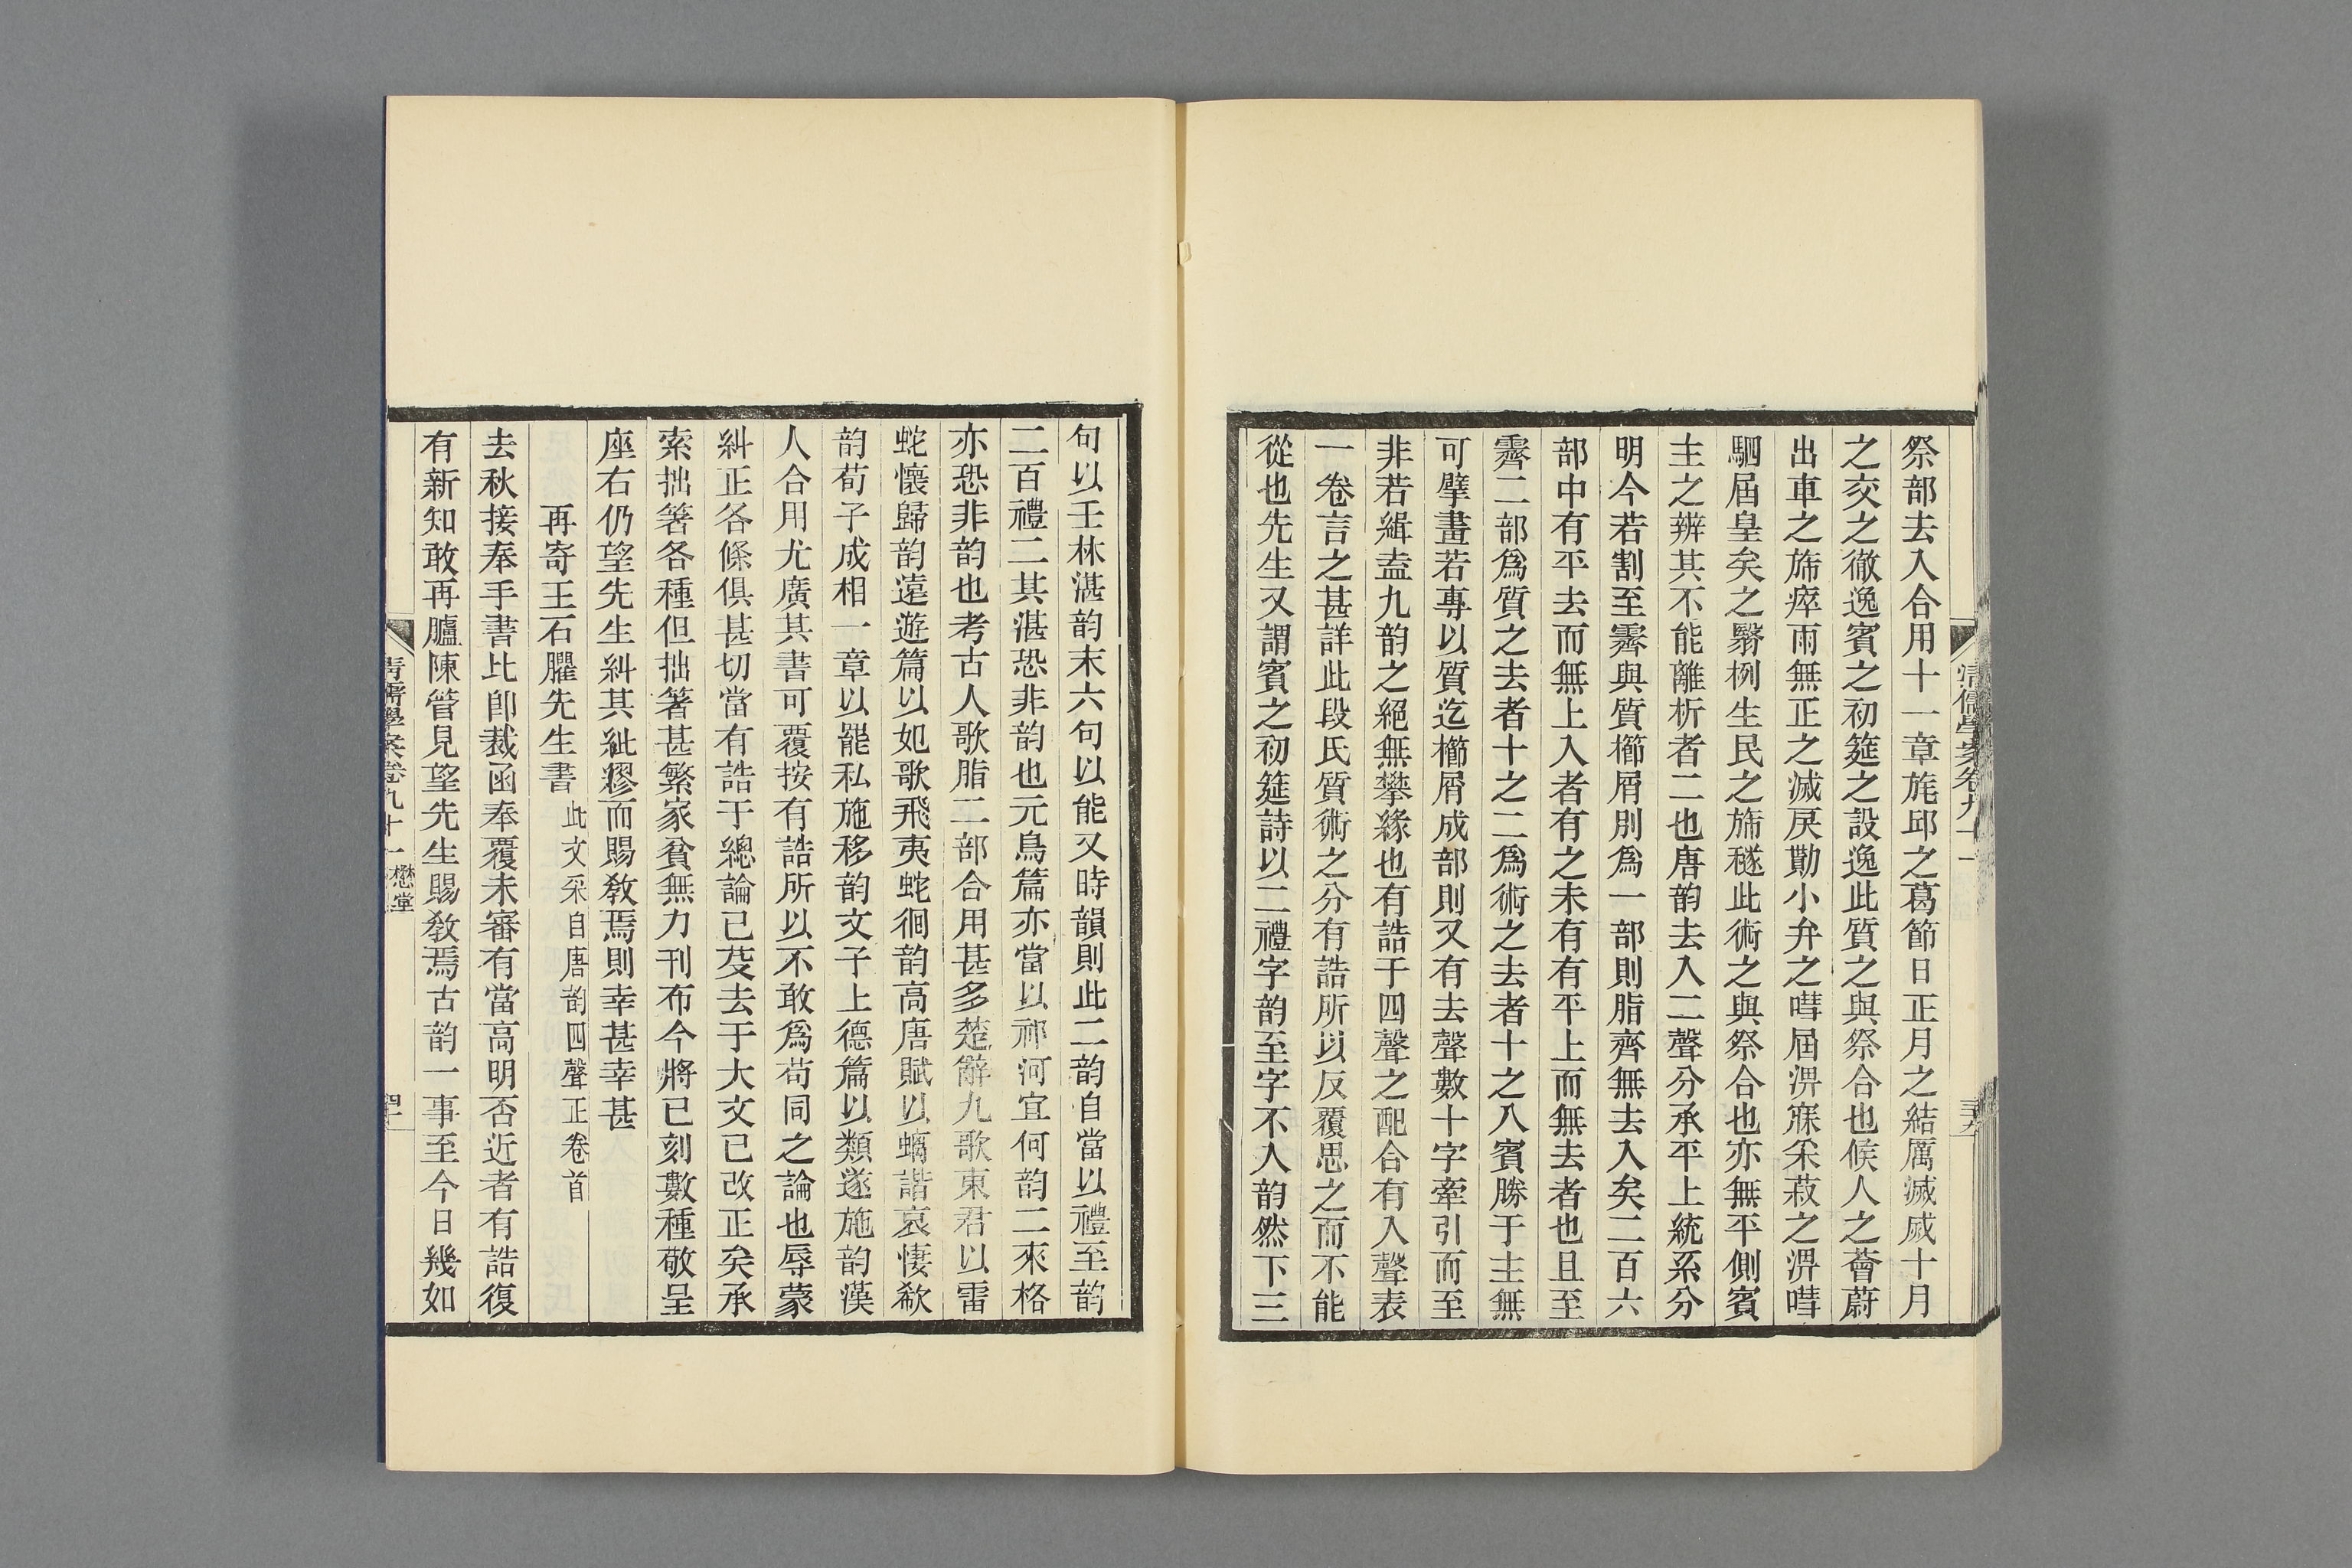 祭部去入合用十一章旄邱之葛節日正月之結厲滅烕十月
之交之徹逸賓之初筵之設逸此質之與祭合也候人之薈蔚
出車之旆瘁雨無正之滅戾勩小弁之嘒屆淠寐采菽之淠嘒
駟屆皇矣之翳栵生民之旆穟此術之與祭合也亦無平側賓
主之辨其不能離析者二也唐韵去入二聲分承平上統系分
明今若割至霽與質櫛屑別爲一部則脂齊無去入矣二百六
部中有平去而無上入者有之未有有平上而無去者也且至
霽二部爲質之去者十之二爲術之去者十之八賓勝于主無
可擘畫若專以質迄櫛屑成部則又有去聲數十字牽引而至
非若緝盍九韵之絕無攀緣也有誥于四聲之配合有入聲表
一卷言之甚詳此段氏質術之分有誥所以反覆思之而不能
從也先生又謂賓之初筵詩以二禮字韵至字不入韵然下三
清儒學案卷九十一
句以壬林湛韵末六句以能又時韻則此二韵自當以禮至韵
二百禮二其湛恐非韵也元鳥篇亦當以祁河宜何韵二來格
亦恐非韵也考古人歌脂二部合用甚多楚辭九歌東君以雷
蛇懷歸韵遠遊篇以妃歌飛夷蛇徊韵高唐賦以螭諧哀悽欷
韵荀子成相一章以罷私施移韵文子上德篇以類遂施韵漢
人合用尤廣其書可覆按有誥所以不敢爲苟同之論也辱蒙
糾正各條俱甚切當有誥于總論已芟去于大文已改正矣承
索拙箸各種但拙箸甚繁家貧無力刊布今將已刻數種敬呈
座右仍望先生糾其紕繆而賜敎焉則幸甚幸甚
再寄王石臞先生書 此文采自唐韵四聲正卷首
去秋接奉手書比卽裁函奉覆未審有當高明否近者有誥復
有新知敢再臚陳管見望先生賜敎焉古韵一事至今日幾如
清儒學案卷九十一 懋堂